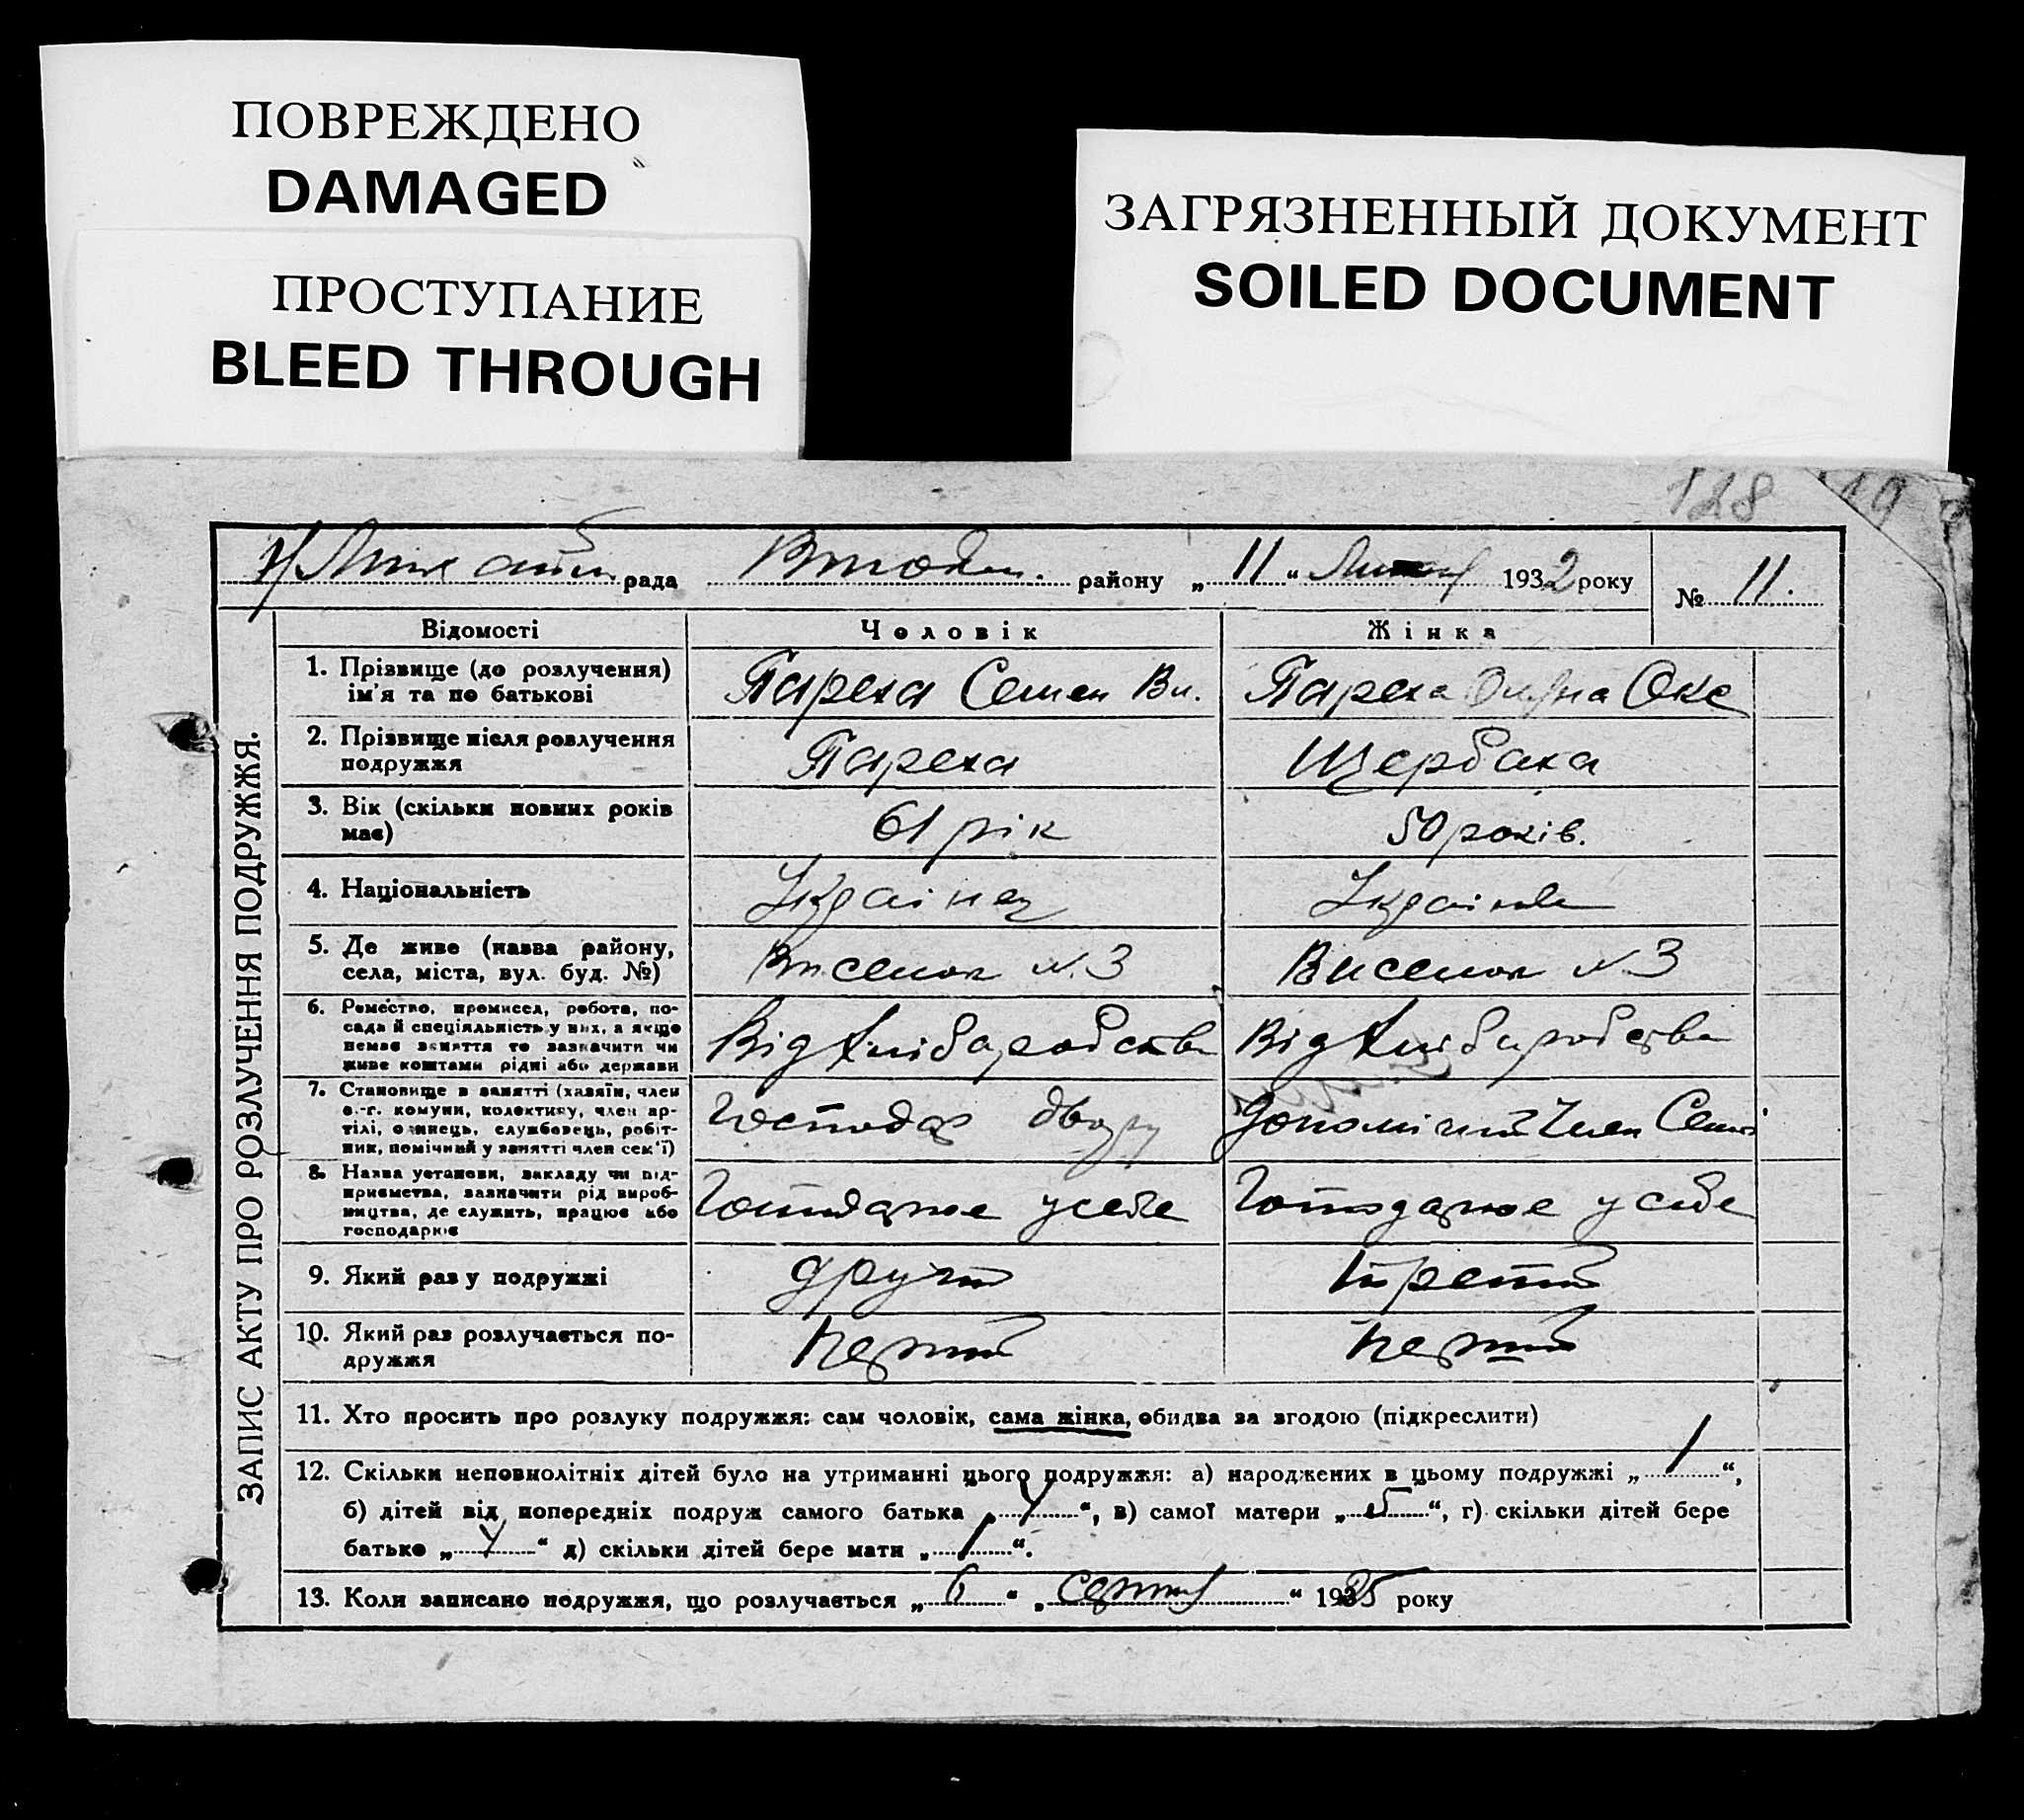 ПОВРЕЖДЕНО
DAMAGED
ПРОСТУПАНИЕ
BLEED THROUGH
ЗАГРЯЗНЕННЫЙ ДОКУМЕНТ
SOILED DOCUMENT
128
рада району „11“ 1932 року № 11.
ЗАПИС АКТУ ПРО РОЗЛУЧЕННЯ ПОДРУЖЖЯ.
Відомості Чоловік Жінка
1. Прізвище (до розлучення) ім'я та по батькові Пареха Семен Ви. Пареха Окс
2. Прізвище після розлучення подружжя Пареха Щербаха
3. Вік (скільки повних років має) 61 рік 50 років.
4. Національність Українец Українка
5. Де живе (назва району, села, міста, вул. буд. №) Виселок N.3 Виселок N.3
6. Ремество, промисел, робота, посада й спеціяльність у них, а якщо немає заняття то зазначити чи живе коштами рідні або держави Від хлібаробства Від хлібаробства
7. Становище в занятті (хазяїн, член с.-г. комуни, колективу, член артілі, одинець, службовець, робітник, помічний у занятті член сем'ї) Господар двору допомічний член Семї
8. Назва установи, закладу чи підприємства, зазначити рід виробництва, де служить, працює або господарює Господарює у себе Господарює у себе
9. Який раз у подружжі другий третій
10. Який раз розлучається подружжя перший перший
11. Хто просить про розлуку подружжя: сам чоловік, сама жінка, обидва за згодою (підкреслити)
12. Скільки неповнолітніх дітей було на утриманні цього подружжя: а) народжених в цьому подружжі „/“,
б) дітей від попередніх подруж самого батька „ “, в) самої матери „ “, г) скільки дітей бере
батько „ “ д) скільки дітей бере мати „/“.
13. Коли записано подружжя, що розлучається „6“ „серпня“ 1925 року